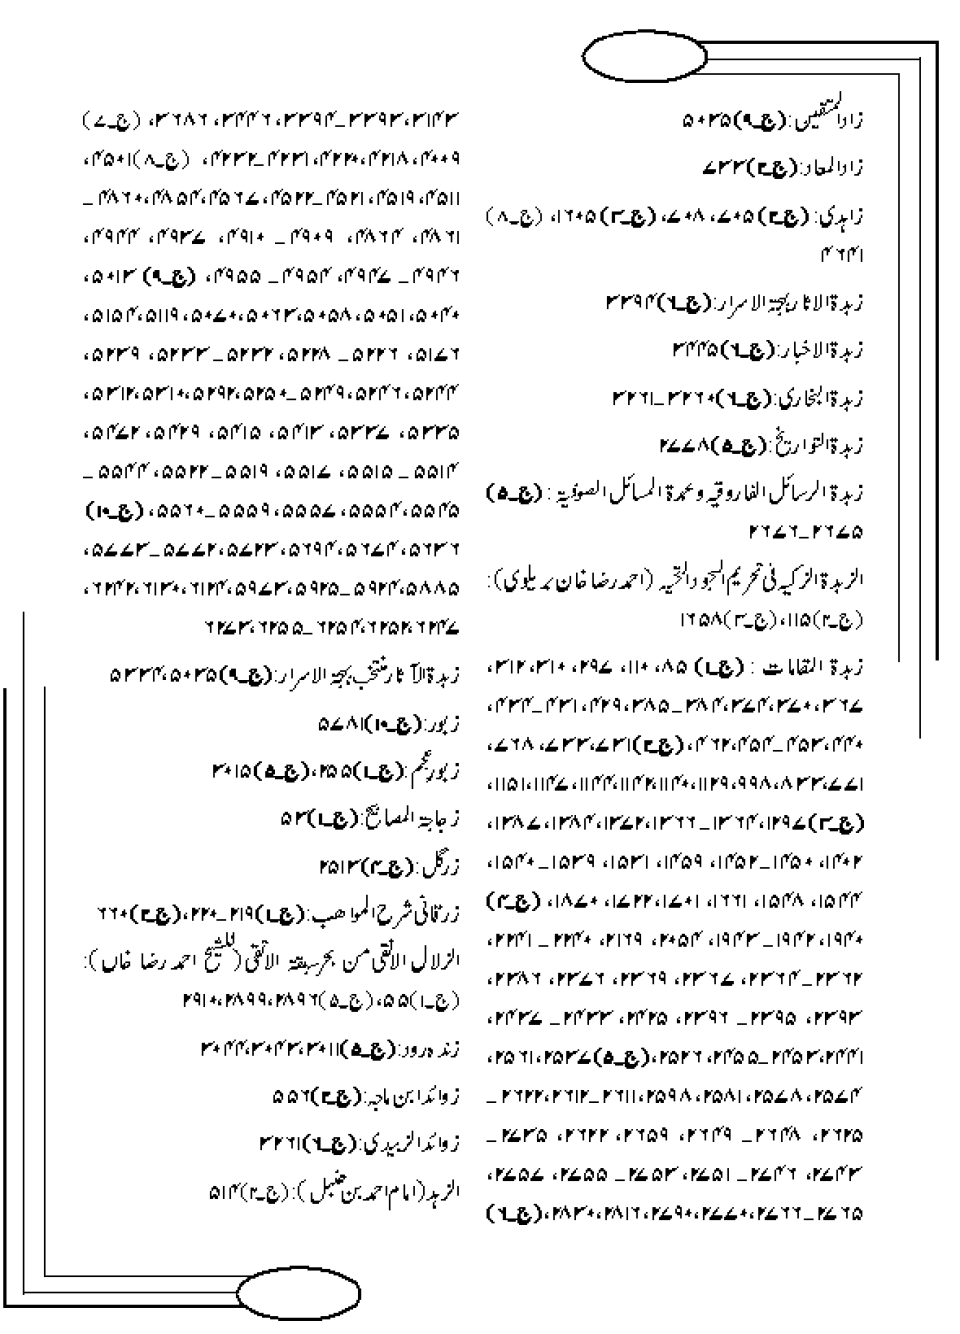 زادالمتقین:(ج۔۹)۵۰۳۵
زادالمعاد:(ج۔۲)۷۳۳
زاہدی:(ج۔۲)۷۰۵، ۷۰۸، (ج۔۳)۱۶۰۵، (ج۔۸)
۴۶۴۱
زبدۃ الاثار بہجۃ الاسرار:(ج۔۶)۳۳۹۴
زبدۃ الاخبار:(ج۔۶)۳۴۴۵
زبدۃ البخاری:(ج۔۶)۳۲۶۰۔۳۲۶۱
زبدۃ التواریخ:(ج۔۵)۲۷۷۸
زبدۃ الرسائل الفاروقیہ وعمدۃ المسائل الصوفیۃ :(ج۔۵)
۲۶۷۵۔۲۶۷۶
الزبدۃ الزکیہ فی تحریم السجود التحیہ (احمد رضا خان بریلوی):
(ج۔۲)۱۱۵،(ج۔۳)۱۶۵۸
زبدۃ المقامات :(ج۔۱)۸۵، ۱۱۰، ۲۹۷، ۳۱۰، ۳۱۲،
۳۶۷، ۳۷۰، ۳۷۴، ۳۸۴۔۳۸۵، ۴۲۹، ۴۳۱۔۴۳۴،
۴۴۰، ۴۵۳۔۴۵۴، ۴۶۲،(ج۔۲)۷۳۱، ۷۳۳، ۷۶۸،
۷۷۱، ۸۳۳، ۹۹۸، ۱۱۲۹، ۱۱۴۰، ۱۱۴۲، ۱۱۴۴، ۱۱۴۷، ۱۱۵۱،
(ج۔۳)۱۲۹۷، ۱۳۶۴۔۱۳۶۶، ۱۳۷۲، ۱۳۸۴، ۱۳۸۷،
۱۴۰۲، ۱۴۵۰۔۱۴۵۲، ۱۴۵۹، ۱۵۳۱، ۱۵۳۹۔۱۵۴۰،
۱۵۴۴، ۱۵۴۸، ۱۶۶۱، ۱۷۰۱، ۱۷۲۲، ۱۸۷۰، (ج۔۴)
۱۹۴۰، ۱۹۴۲۔۱۹۴۳، ۲۰۵۴، ۲۱۶۹، ۲۲۴۰۔۲۲۴۱،
۲۳۶۲۔۲۳۶۴، ۲۳۶۷، ۲۳۶۹، ۲۳۷۶، ۲۳۸۶،
۲۳۹۳، ۲۳۹۵۔۲۳۹۶، ۲۴۲۵، ۲۴۳۳۔۲۴۳۷،
۲۴۴۱، ۲۴۵۳۔۲۴۵۵، ۲۵۲۶،(ج۔۵)۲۵۳۷، ۲۵۶۱،
۲۵۷۴، ۲۵۷۸، ۲۵۸۱، ۲۵۹۸، ۲۶۱۱۔۲۶۱۲، ۲۶۲۲۔
۲۶۲۵، ۲۶۴۸۔۲۶۴۹، ۲۶۵۹، ۲۶۶۲، ۲۷۳۵۔
۲۷۴۳، ۲۷۴۶۔۲۷۵۱، ۲۷۵۳۔۲۷۵۵، ۲۷۵۷،
۲۷۶۵۔۲۷۶۶، ۲۷۷۰، ۲۷۹۰، ۲۸۱۶، ۲۸۳۰،(ج۔۶)
۳۱۴۳، ۳۳۹۳۔۳۳۹۴، ۳۴۴۶، ۳۶۸۶، (ج۔۷)
۴۰۰۹، ۴۲۱۸، ۴۲۲۰، ۴۲۳۱۔۴۲۳۲، (ج۔۸)۴۵۰۱،
۴۵۱۱، ۴۵۱۹، ۴۵۲۱۔۴۵۲۲، ۴۵۶۷، ۴۸۵۴، ۴۸۶۰۔
۴۸۶۱، ۴۸۶۴، ۴۹۰۹۔۴۹۱۰، ۴۹۳۷، ۴۹۴۴،
۴۹۴۶۔۴۹۴۷، ۴۹۵۴۔۴۹۵۵، (ج۔۹)۵۰۱۳،
۵۰۴۰، ۵۰۵۱، ۵۰۵۸، ۵۰۶۳، ۵۰۷۰، ۵۱۱۹، ۵۱۵۴،
۵۱۷۶، ۵۲۲۶۔۵۲۲۸، ۵۲۳۲۔۵۲۳۳، ۵۲۳۹،
۵۲۴۴، ۵۲۴۶، ۵۲۴۹۔۵۲۵۰، ۵۲۹۲، ۵۳۱۰، ۵۳۱۲،
۵۳۳۵، ۵۳۳۷، ۵۴۱۳، ۵۴۱۵، ۵۴۲۹، ۵۴۷۲،
۵۵۱۴۔۵۵۱۵، ۵۵۱۷، ۵۵۱۹۔۵۵۲۲، ۵۵۴۴۔
۵۵۴۵، ۵۵۵۴، ۵۵۵۷، ۵۵۵۹۔۵۵۶۰، (ج۔۱۰)
۵۶۳۶، ۵۶۷۴، ۵۶۹۴، ۵۷۲۳، ۵۷۷۲۔۵۷۷۳،
۵۸۸۵، ۵۹۲۴۔۵۹۲۵، ۵۹۷۳، ۶۱۲۴، ۶۱۳۰، ۶۲۴۲،
۶۲۴۷، ۶۲۵۲، ۶۲۵۴۔۶۲۵۵، ۶۲۷۳
زبدۃ الآثار منتخب بہجۃ الاسرار:(ج۔۹)۵۰۳۵، ۵۳۳۴
زبور:(ج۔۱۰)۵۷۸۱
زبور عجم:(ج۔۱)۲۵۵،(ج۔۵)۳۰۱۵
زجاجۃ المصابیح:(ج۔۱)۵۳
زر گل:(ج۔۴)۲۵۱۳
زرقانی شرح المواھب:(ج۔۱)۲۱۹۔۲۲۰،(ج۔۲)۶۶۰
الزلال الانقی من بحر سبقۃ الاتقی (للشیخ احمد رضا خاں):
(ج۔۱)۵۵،(ج۔۵)۲۸۹۶، ۲۸۹۹، ۲۹۱۰
زندہ رود:(ج۔۵)۳۰۱۱، ۳۰۴۳، ۳۰۴۴
زوائد ابن ماجہ:(ج۔۲)۵۵۶
زوائد الزبیدی:(ج۔۶)۳۲۶۱
الزہد (امام احمد بن حنبل):(ج۔۲)۵۱۴